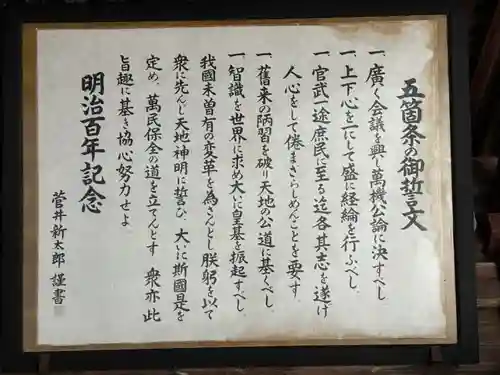 五箇条の御誓文
一、廣く会議を興し萬機公論に決すべし
一、上下心を一にして盛に経綸を行ふべし
一、官武一途庶民に至る迄各其志を遂け
人心をして倦まさらしめんことを要す
一、舊来の陋習を破り天地の公道に基くべし
一、智識を世界に求め大いに皇基を振起すべし
我國未曽有の変革を為さんとし朕躬を以て
衆に先んし天地神明に誓ひ、大いに斯國是を
定め、萬民保全の道を立てんとす 衆亦此
旨趣に基き協心努力せよ
明治百年記念
菅井新太郎 謹書